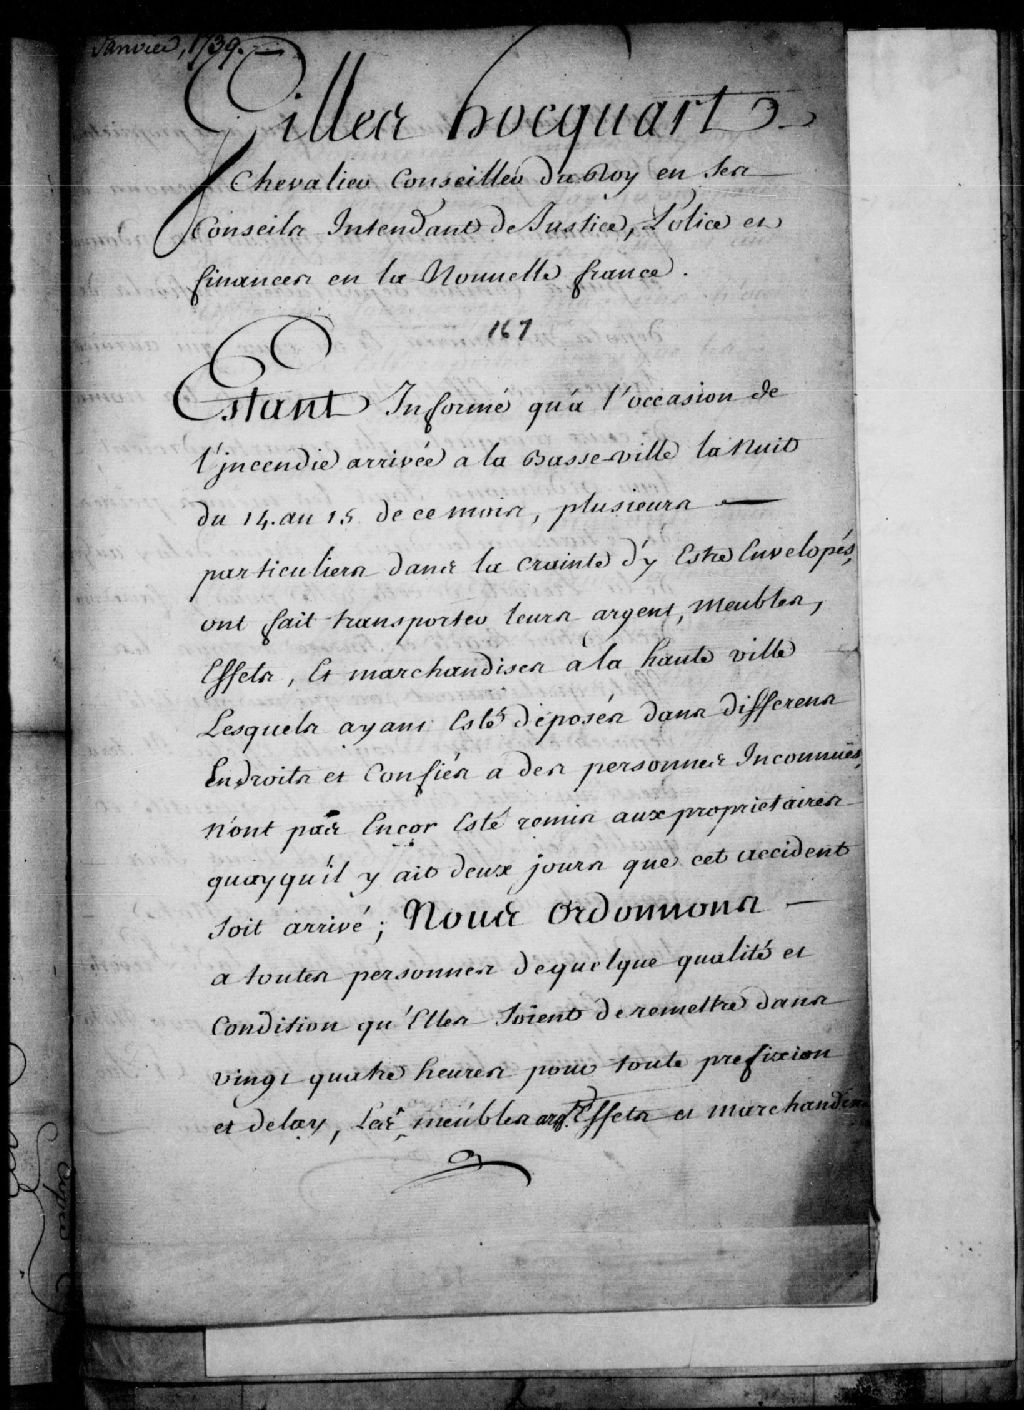 Janvier, 1739.
Gilles hocquart
Chevalier Conseiller du Roy en ses
Conseils Intendant de Justice, Police et
finances en la Nouuelle france.
167
Estant Informé qu'a l'occasion de
l'jncendie arrivée a la Basse-ville la Nuit
du 14. au 15 de ce mois, plusieurs
particuliers dans la crainte d'y Estre Envelopés,
ont fait transporter leurs argent, meubles,
Effets, Et marchandises à la haute ville
Lesquels ayant Esté déposés dans differens
Endroits et Confiés a des personnes Inconnuës,
n'ont pas Encor Esté remis aux proprietaires
quoyqu'il y ait deux jours que cet accident
soit arrivé; Nous Ordonnons
a toutes personnes de quelque qualité et
Condition qu'Elles soient de remettre dans
vingt quatre heures pour toute prefixion
et delay, Les meubles arg.t Effets et marchandises